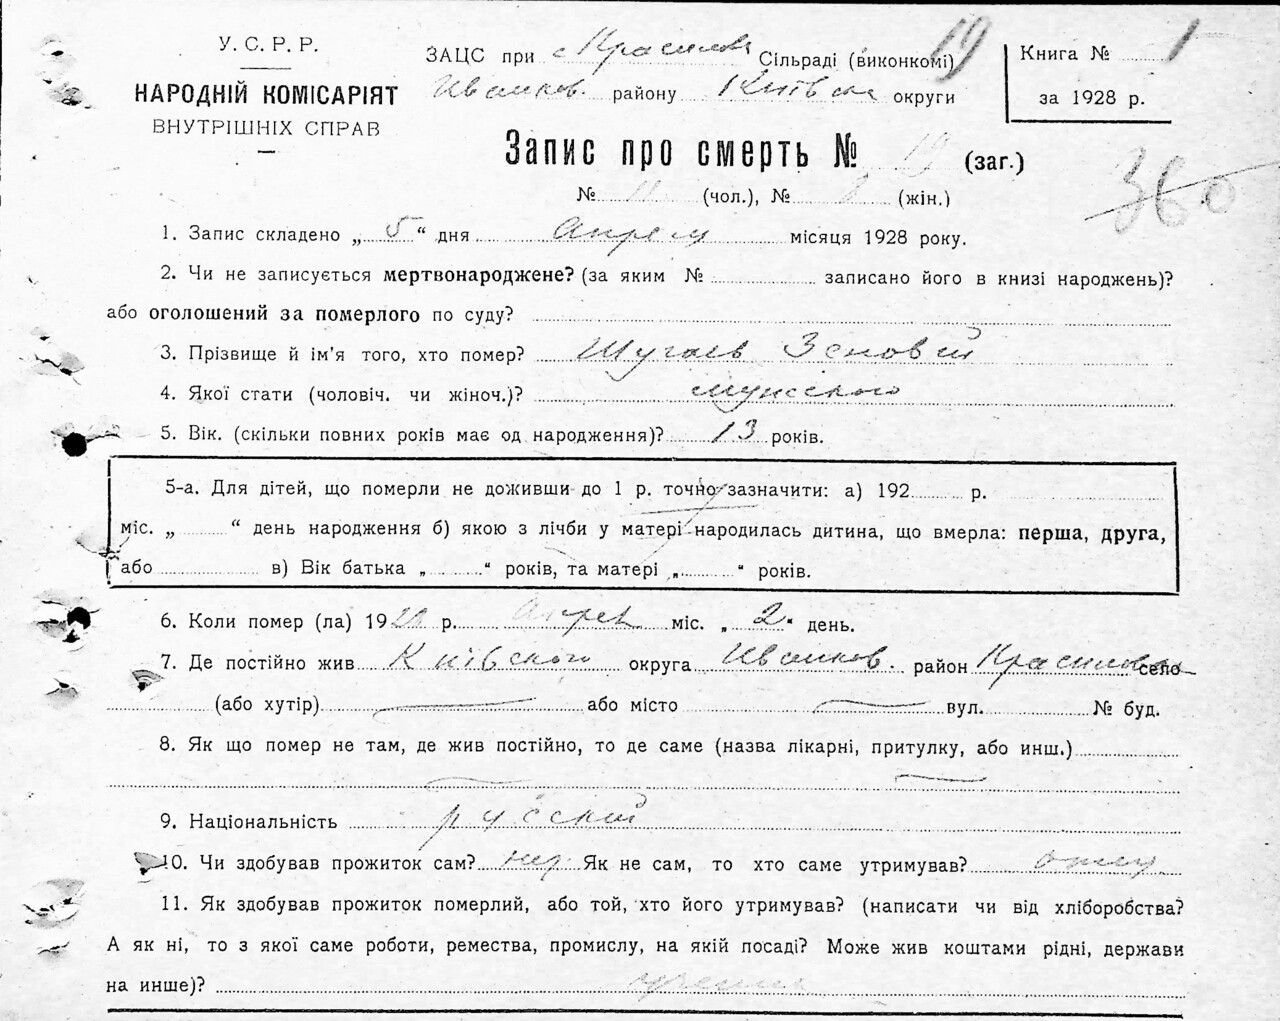 У. С. Р. Р.
НАРОДНІЙ КОМІСАРІЯТ
ВНУТРІШНІХ СПРАВ
ЗАЦС при с Красилов Сільраді (виконкомі) 19
Иванков. району Київськ округи
Книга № 1
за 1928 р.
Запис про смерть № 19 (заг.)
№ 11 (чол.), № 8 (жін.)
360
1. Запис складено „ 5 “ дня Апреля місяця 1928 року.
2. Чи не записується мертвонароджене? (за яким № записано його в книзі народжень)?
або оголошений за померлого по суду?
3. Прізвище й ім’я того, хто помер? Шугаев Зеновій
4. Якої стати (чоловіч. чи жіноч.)? мужского
5. Вік. (скільки повних років має од народження)? 13 років.
5-а. Для дітей, що померли не доживши до 1 р. точно зазначити: а) 192 р.
міс. „ “ день народження б) якою з лічби у матері народилась дитина, що вмерла: перша, друга,
або в) Вік батька „ “ років, та матері „ “ років.
6. Коли помер (ла) 1928 р. Апрел міс. „ 2 “ день.
7. Де постійно жив Київского округа Иванков. район Красиловка село
(або хутір) або місто вул. № буд.
8. Як що помер не там, де жив постійно, то де саме (назва лікарні, притулку, або инш.)
9. Національність русский
10. Чи здобував прожиток сам? нет Як не сам, то хто саме утримував? отец
11. Як здобував прожиток померлий, або той, хто його утримував? (написати чи від хліборобства?
А як ні, то з якої саме роботи, ремества, промислу, на якій посаді? Може жив коштами рідні, держави
на инше)?